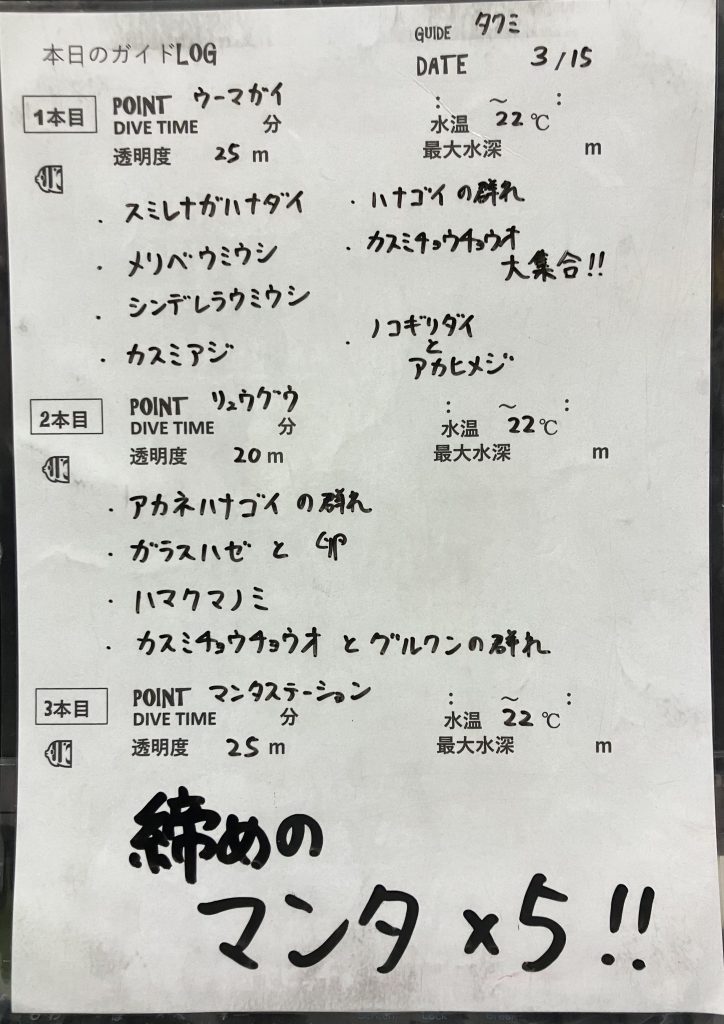 本日のガイドLOG
GUIDE タクミ
DATE 3/15
1本目 POINT ウーマガイ : ～ :
DIVE TIME 分 水温 22℃
透明度 25 m 最大水深 m
・スミレナガハナダイ
・メリベウミウシ
・シンデレラウミウシ
・カスミアジ
・ハナゴイの群れ
・カスミチョウチョウオ
大集合!!
・ノコギリダイ
と
アカヒメジ
2本目 POINT リュウグウ : ～ :
DIVE TIME 分 水温 22℃
透明度 20 m 最大水深 m
・アカネハナゴイの群れ
・ガラスハゼと卵
・ハマクマノミ
・カスミチョウチョウオとグルクンの群れ
3本目 POINT マンタステーション : ～ :
DIVE TIME 分 水温 22℃
透明度 25 m 最大水深 m
締めの
マンタ×5!!